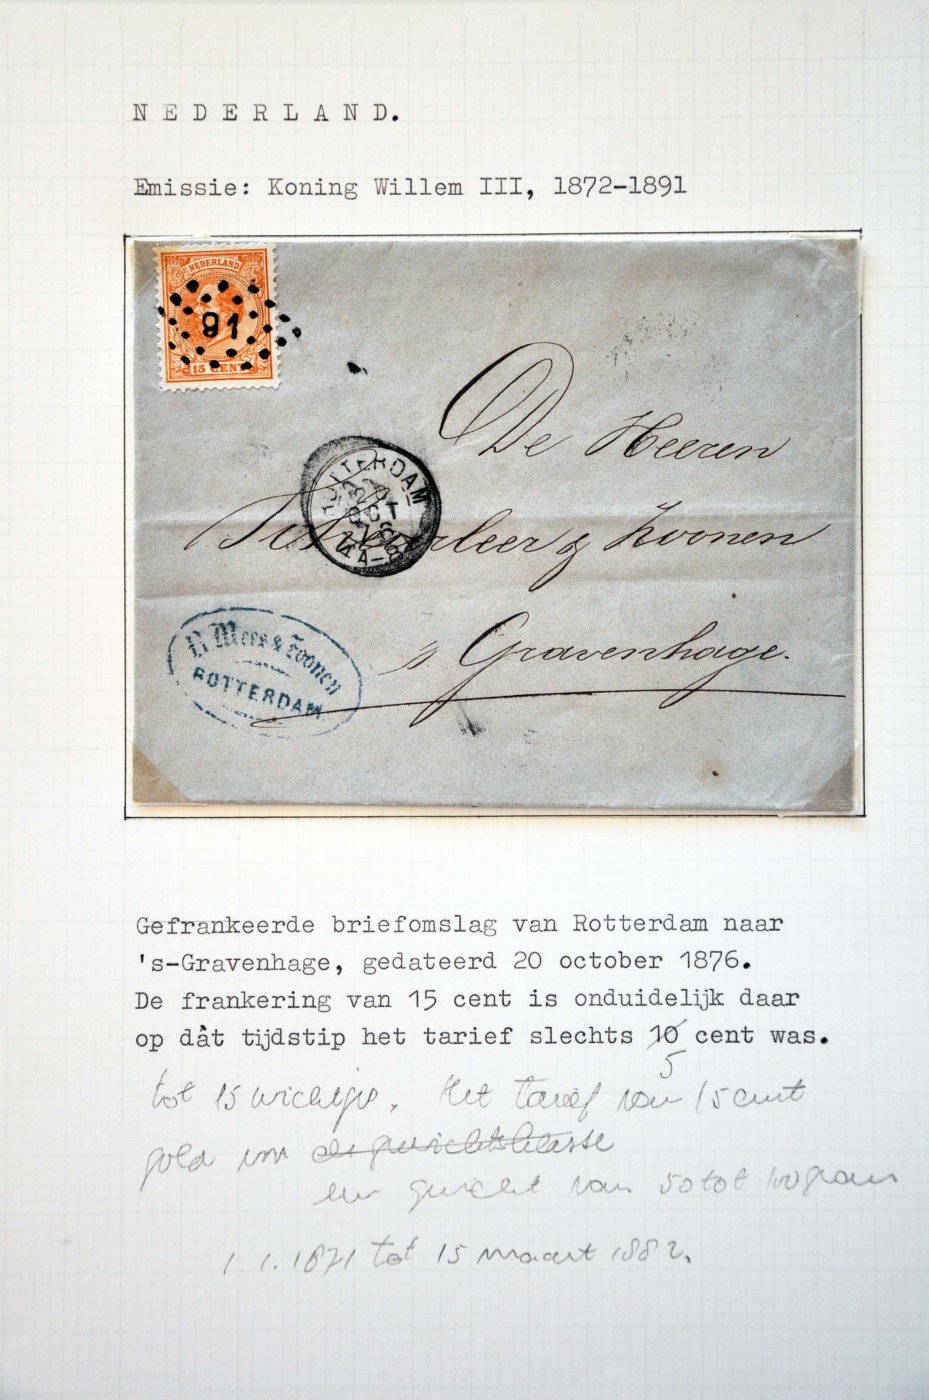 NEDERLAND.
Emissie: Koning Willem III, 1872-1891
NEDERLAND
91
15 CENT
De Heeren
& Zoonen
's Gravenhage.
ROTTERDAM
20
OCT
76
R Mees & Zoonen
ROTTERDAM
Gefrankeerde briefomslag van Rotterdam naar
's-Gravenhage, gedateerd 20 october 1876.
De frankering van 15 cent is onduidelijk daar
op dàt tijdstip het tarief slechts 10 cent was.
5
tot 15 wichtjes. Het tarief van 15 cent
gold voor de gewichtsklasse
een gewicht van 50 tot 100 gram
1.1.1871 tot 15 maart 1882.